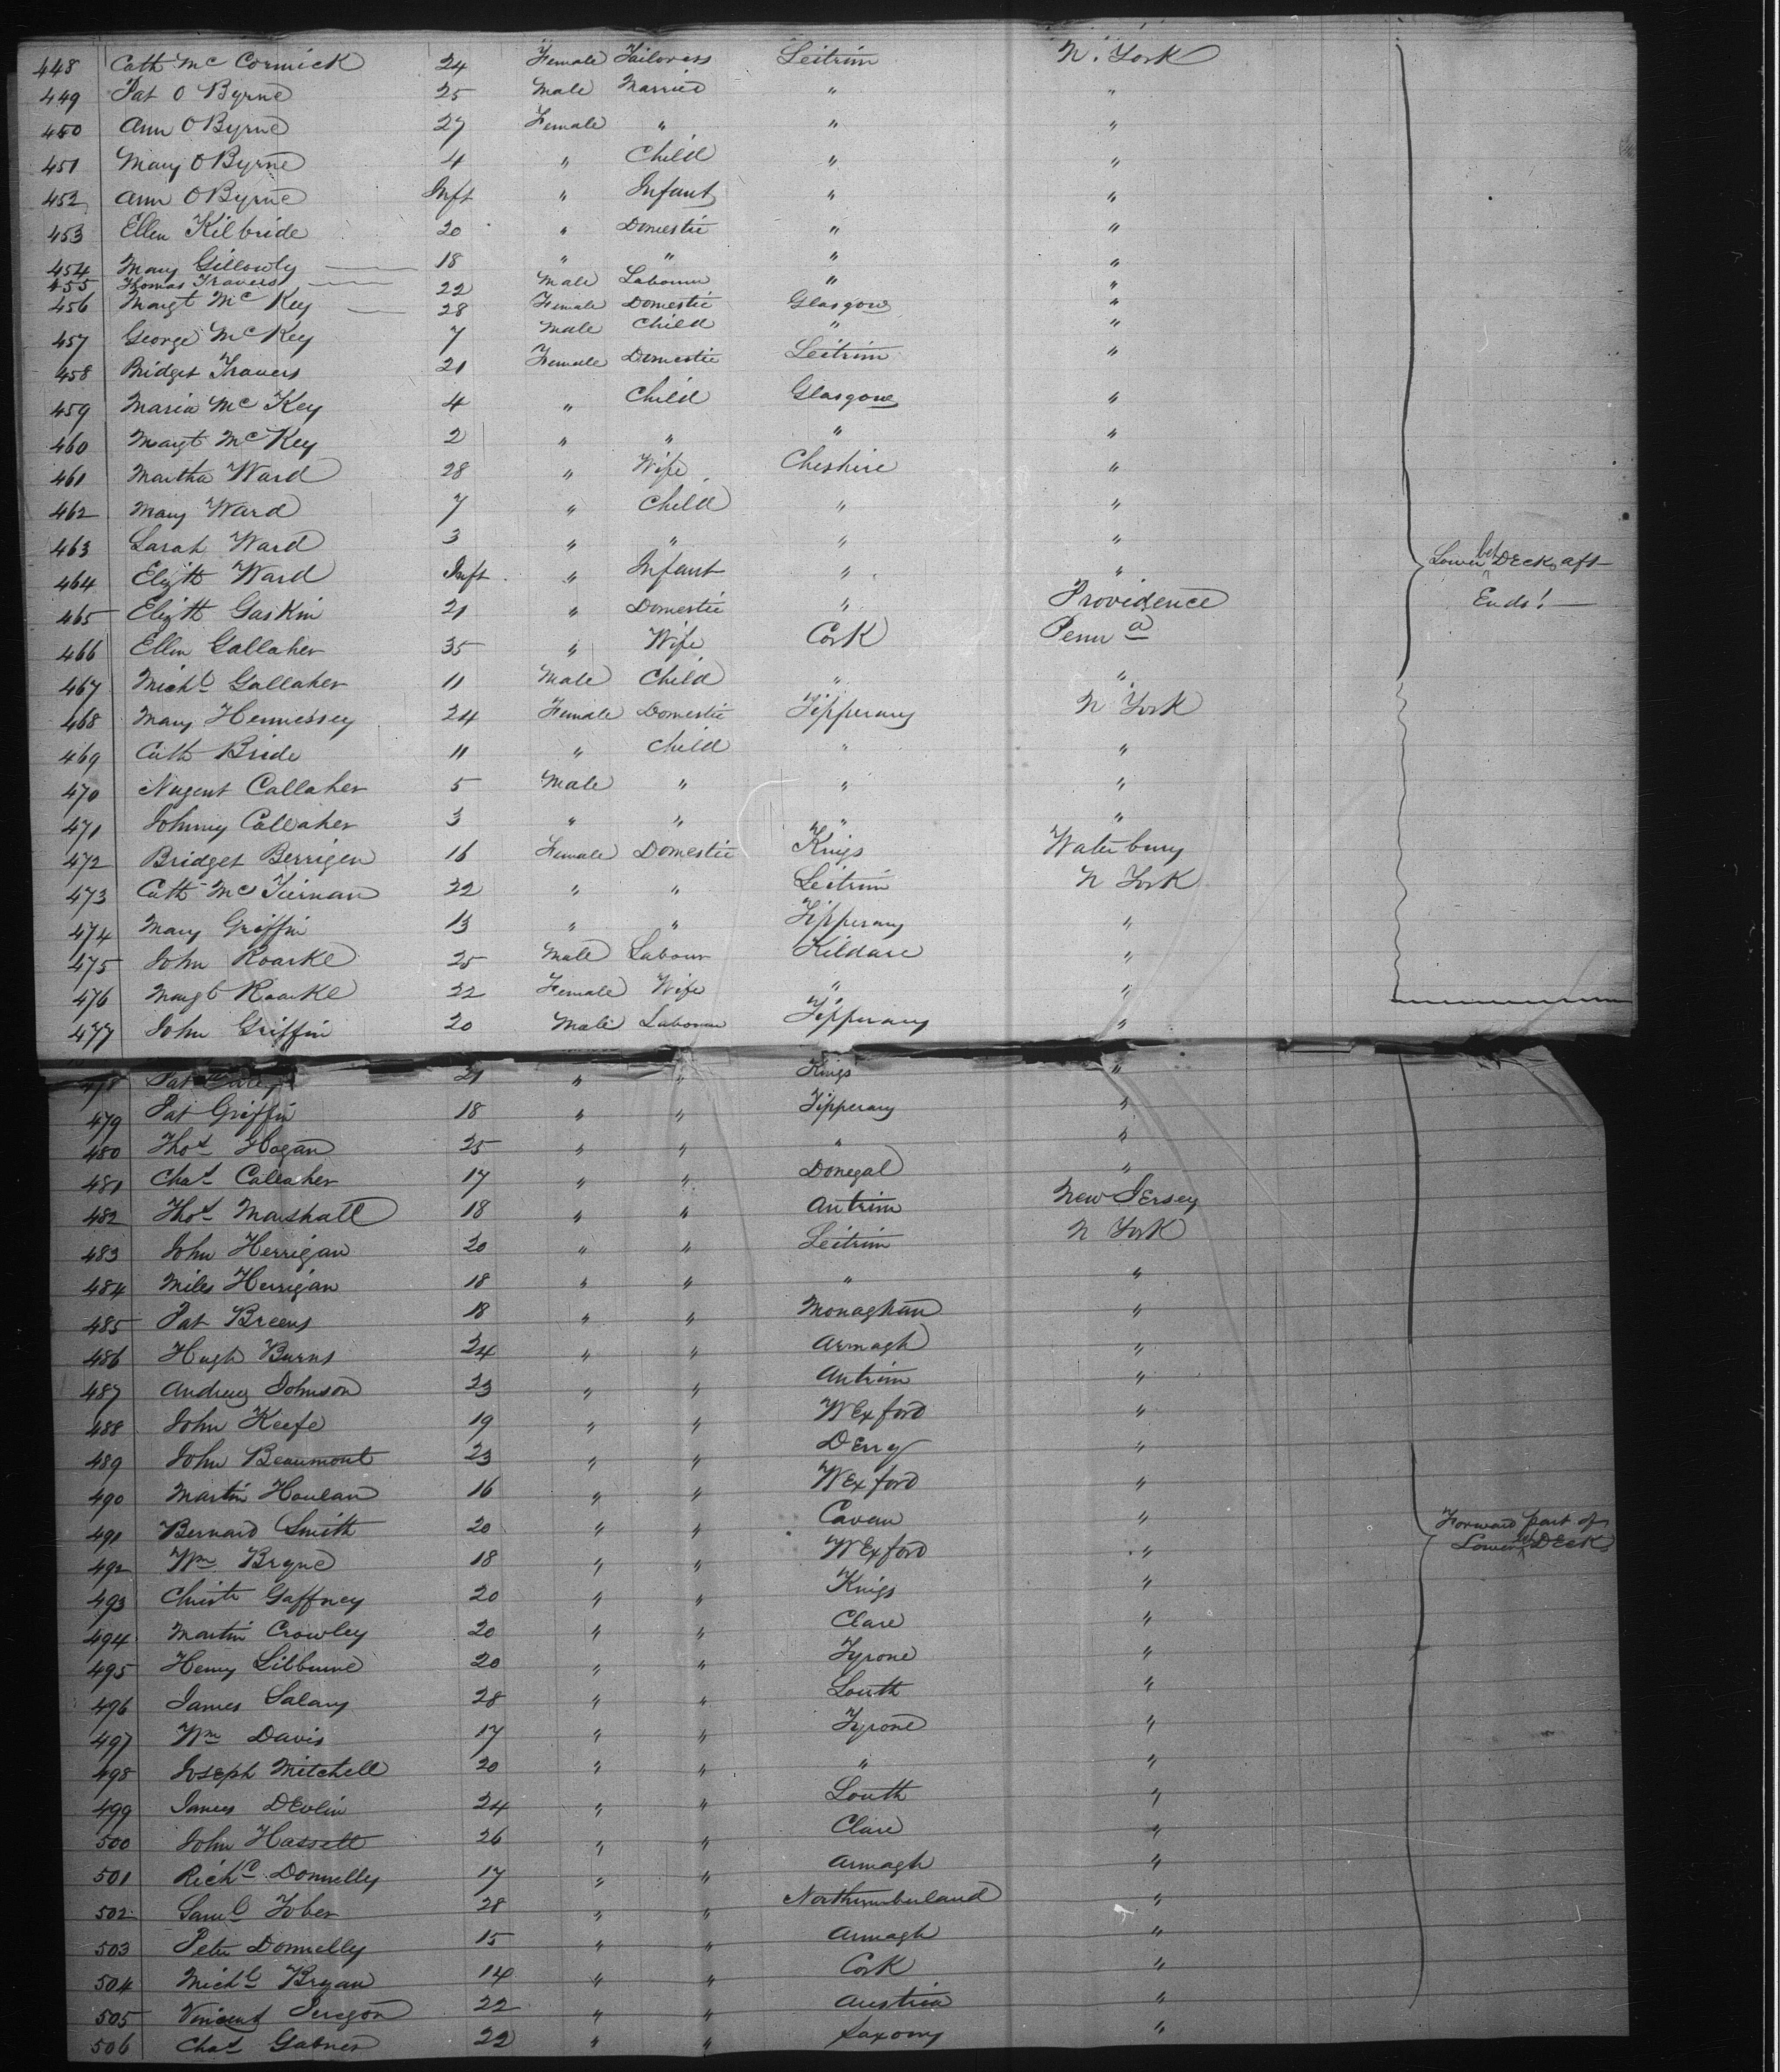 448 Cath Mc Cormick 24 Female Tailoress Leitrim N. York
449 Pat O Byrne 25 Male Married " "
450 Ann O Byrne 27 Female " " "
451 Mary O Byrne 4 " Child " "
452 Ann O Byrne Inft " Infant " "
453 Ellen Kilbride 20 " Domestic " "
454 Mary Gillowly 18 " " " "
455 Thomas Travers 22 Male Labourer " "
456 Margt Mc Key 28 Female Domestic Glasgow "
457 George Mc Key 7 Male Child " "
458 Bridget Travers 21 Female Domestic Leitrim "
459 Maria Mc Key 4 " Child Glasgow "
460 Margt Mc Key 2 " " " "
461 Martha Ward 28 " Wife Cheshire "
462 Mary Ward 7 " Child " "
463 Sarah Ward 3 " " " "
464 Elizth Ward Inft " Infant " " Lower bet Deck aft
465 Elizth Gaskin 21 " Domestic " Providence Ends!
466 Ellen Gallaher 35 " Wife Cork Penn a
467 Michl Gallaher 11 Male Child " "
468 Mary Hennessey 24 Female Domestic Tipperary N York
469 Cath Bride 11 " Child " "
470 Nugent Callaher 5 Male " " "
471 Johnny Callaher 3 " " " "
472 Bridget Berrigen 16 Female Domestic Kings Waterbury
473 Cath Mc Tiernan 22 " " Leitrim N York
474 Mary Griffin 13 " " Tipperary "
475 John Roarke 25 Male Labour Kildare "
476 Margt Roarke 22 Female Wife " "
477 John Griffin 20 Male Labourer Tipperary "
478 Pat 21 " " Kings "
479 Pat Griffin 18 " " Tipperary "
480 Thos Hogan 25 " " " "
481 Chas Callaher 17 " " Donegal "
482 Thos Marshall 18 " " Antrim New Jersey
483 John Herrigan 20 " " Leitrim N York
484 Miles Herrigan 18 " " " "
485 Pat Breens 18 " " Monaghan "
486 Hugh Burns 24 " " Armagh "
487 Andrew Johnson 23 " " Antrim "
488 John Keefe 19 " " Wexford "
489 John Beaumont 23 " " Derry "
490 Martin Houlan 16 " " Wexford "
491 Bernard Smith 20 " " Cavan " Forward part of
492 Wm Bryne 18 " " Wexford " Lower bet Deck
493 Christr Gaffney 20 " " Kings "
494 Martin Crowley 20 " " Clare "
495 Henry Lilburne 20 " " Tyrone "
496 James Salary 28 " " Louth "
497 Wm Davis 17 " " Tyrone "
498 Joseph Mitchell 20 " " " "
499 James Devlin 24 " " Louth "
500 John Hassett 26 " " Clare "
501 Richd Donnelly 17 " " Armagh "
502 Saml Tober 28 " " Northumberland "
503 Peter Donnelly 15 " " Armagh "
504 Michl Bryan 14 " " Cork "
505 Vincent 22 " " Austria "
506 Chas Gabner 22 " " Saxony "